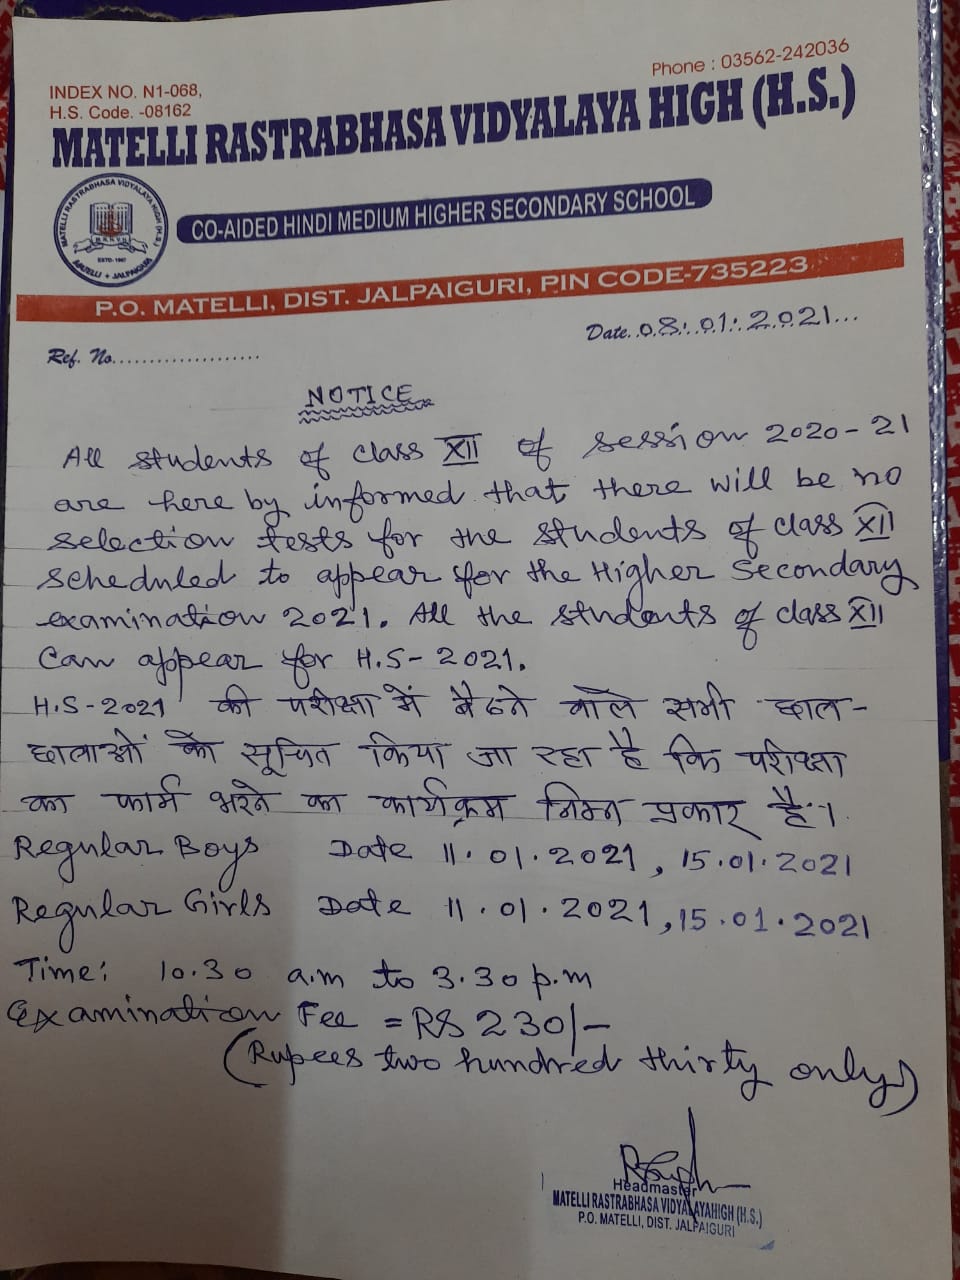 INDEX NO. N1-068,
Phone : 03562-242036
H.S. Code. -08162
MATELLI RASTRABHASA VIDYALAYA HIGH (H.S.)
MATELLI RASTRABHASA VIDYALAYA HIGH (H.S.)
M.R.H.V.H.
ESTD- 1967
MATELLI + JALPAIGURI
CO-AIDED HINDI MEDIUM HIGHER SECONDARY SCHOOL
P.O. MATELLI, DIST. JALPAIGURI, PIN CODE-735223
Date..08.01.2021...
Ref. No....................
NOTICE
All students of class XII of session 2020-21
are here by informed that there will be no
selection tests for the students of class XII
scheduled to appear for the Higher Secondary
examination 2021. All the students of class XII
can appear for H.S-2021.
H.S-2021 की परीक्षा में बैठने वाले सभी छात्र-
छात्राओं को सूचित किया जा रहा है कि परीक्षा
का फार्म भरने का कार्यक्रम निम्न प्रकार है:।
Regular Boys Date 11.01.2021, 15.01.2021
Regular Girls Date 11.01.2021, 15.01.2021
Time: 10.30 a.m to 3.30 p.m
Examination Fee = RS 230/-
(Rupees two hundred thirty only)
Headmaster
MATELLI RASTRABHASA VIDYALAYAHIGH (H.S.)
P.O. MATELLI, DIST. JALPAIGURI